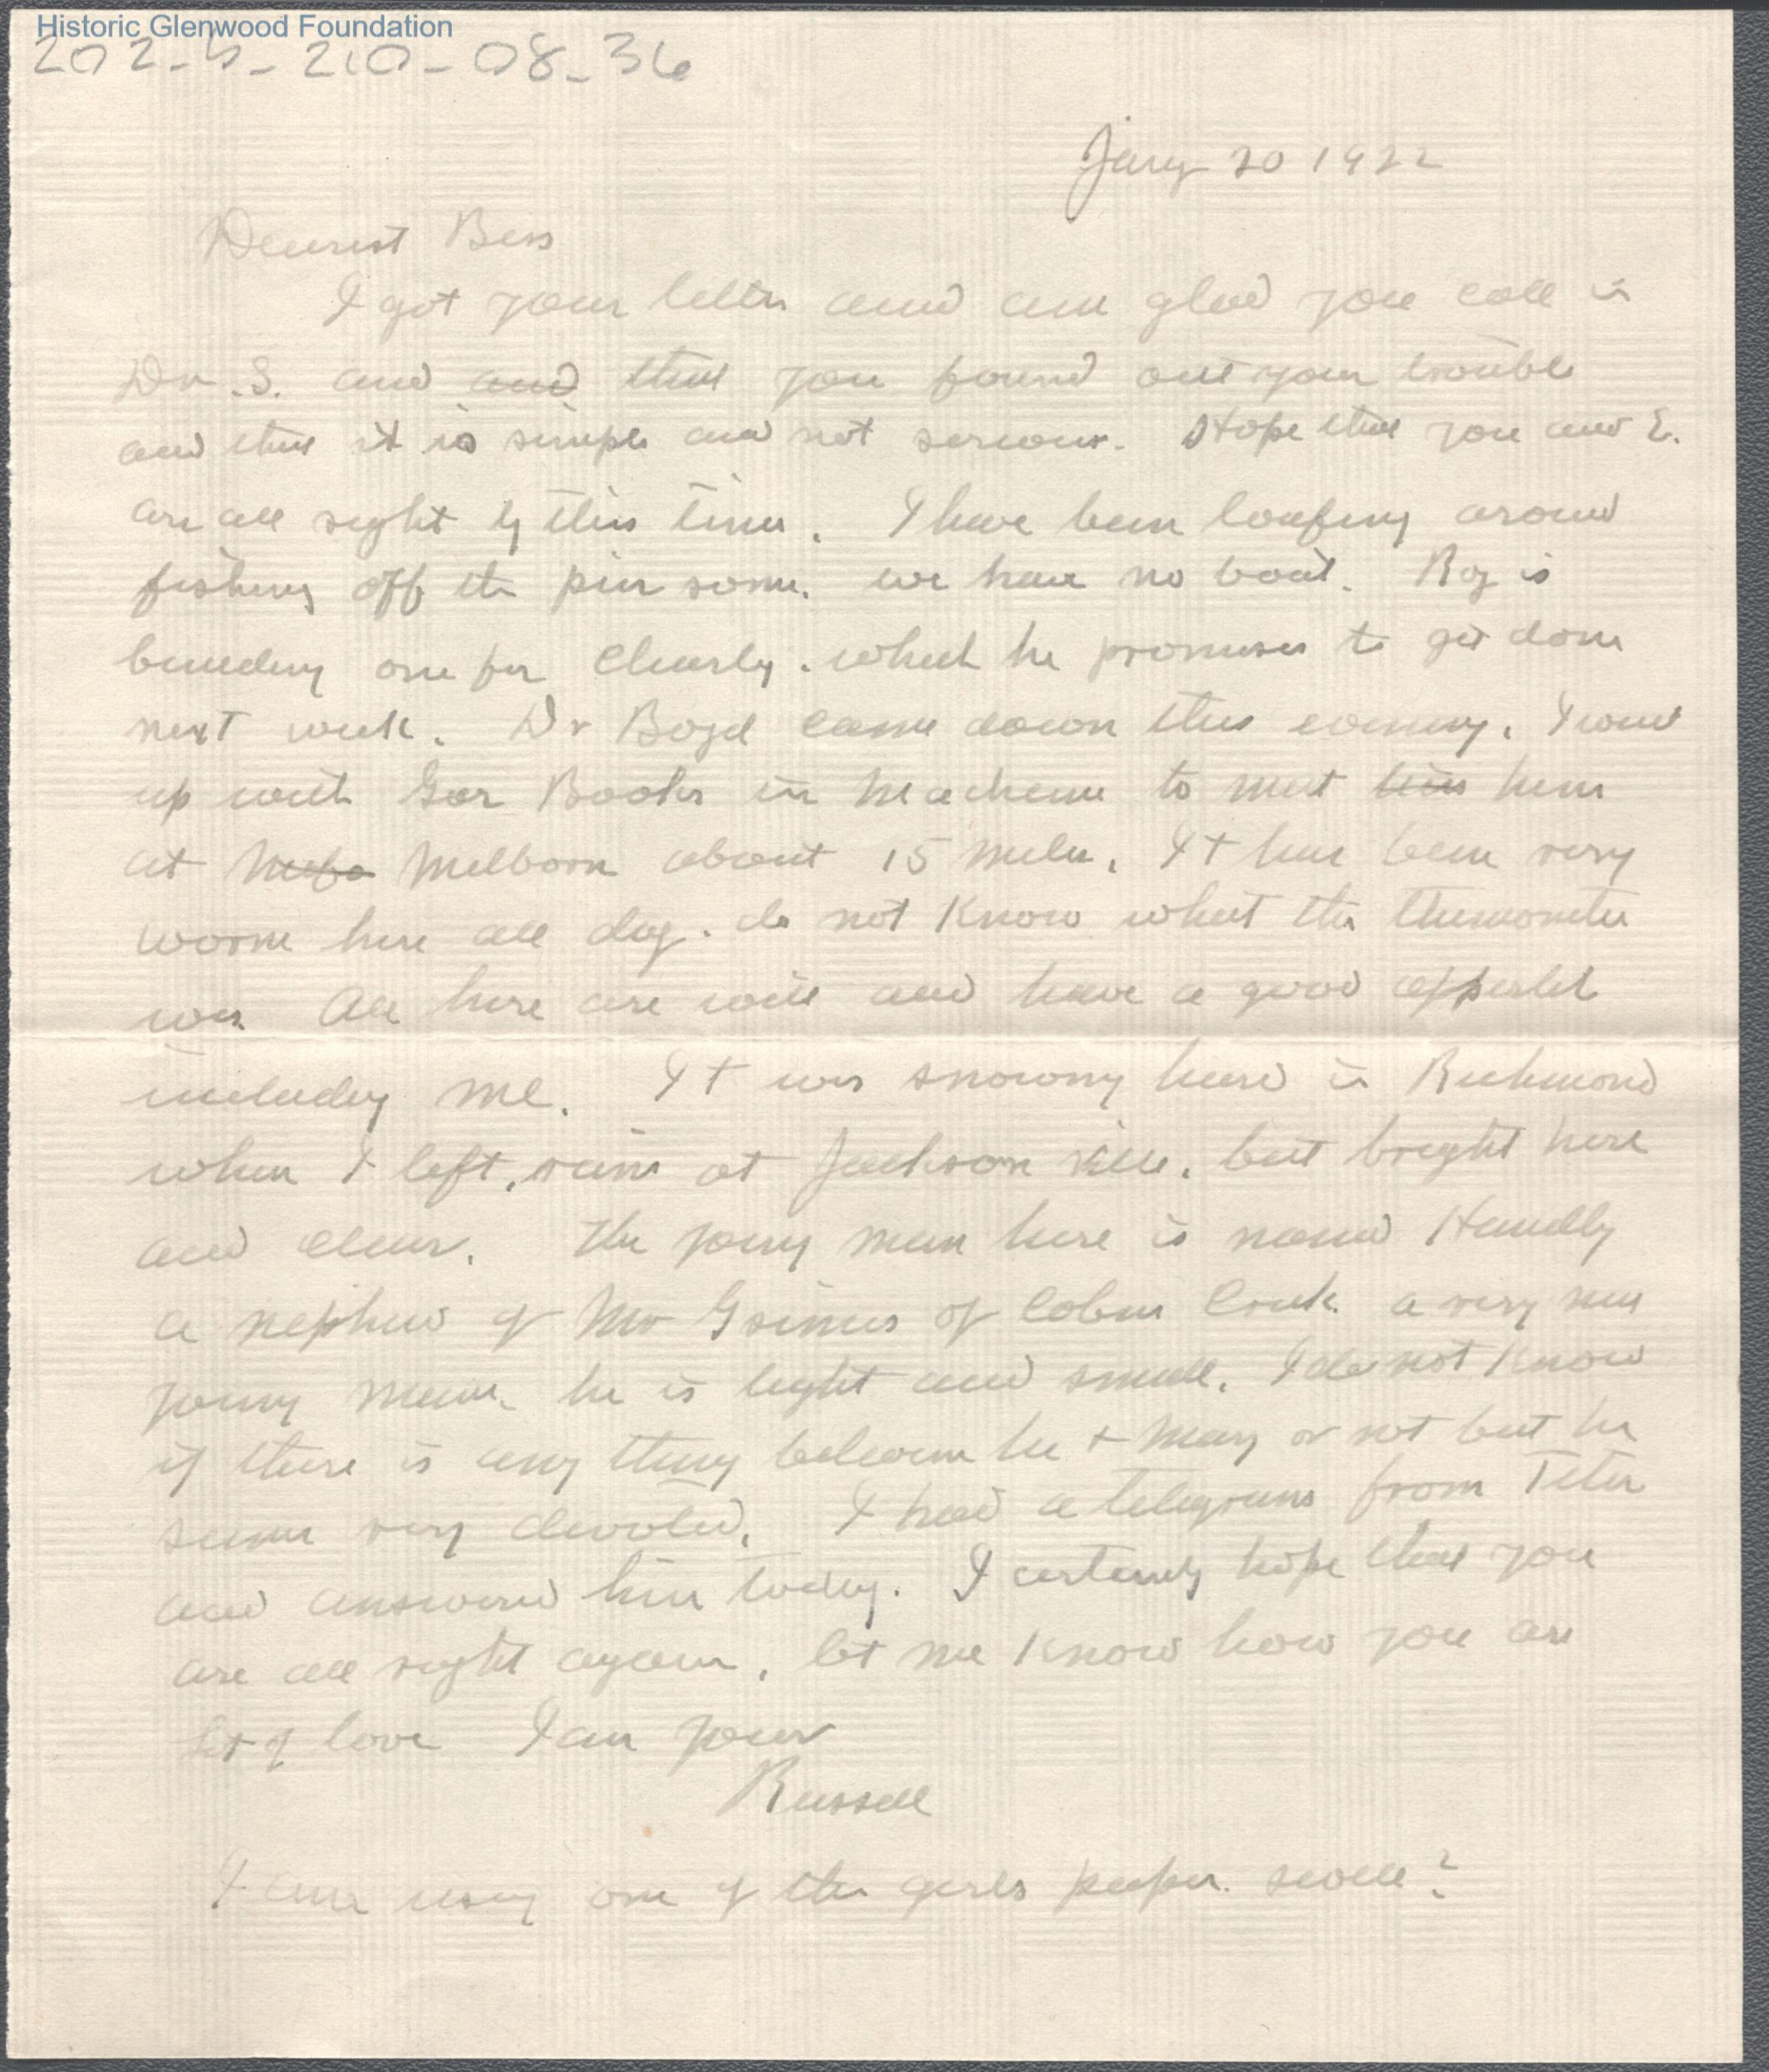 Historic Glenwood Foundation
202-5-210-08-36
Jany 20 1922
Dearest Bess
I got your letter and am glad you call in
Dr. S. and and that you found out your trouble
and that it is simple and not serious. Hope that you and E.
are all right by this time. I have been loafing around
fishing off the pier some. we have no boat. Roy is
building one for Charly. which he promises to get done
next week. Dr Boyd came down this evening. I went
up with Books in Machine to meet him him
at Melborn about 15 miles. It has been very
worm here all day. do not Know what the themometer
was All here are well and have a good apperlet
includeg me. It was snowing heard in Richmond
when I left, rain at Jackson ville. but bright here
and clear. The young man here is named Handly
a nephew of Mr Grimes of Creek a very nice
young man. he is light and small. I do not Know
if there is any thing between he + Mary or not but he
seems very devoted. I had a telegram from Peter
and answered him today. I certainly hope that you
are all right again. let me Know how you are
Lot of love I am your
Russell
I am using one of the girls paper. swell?